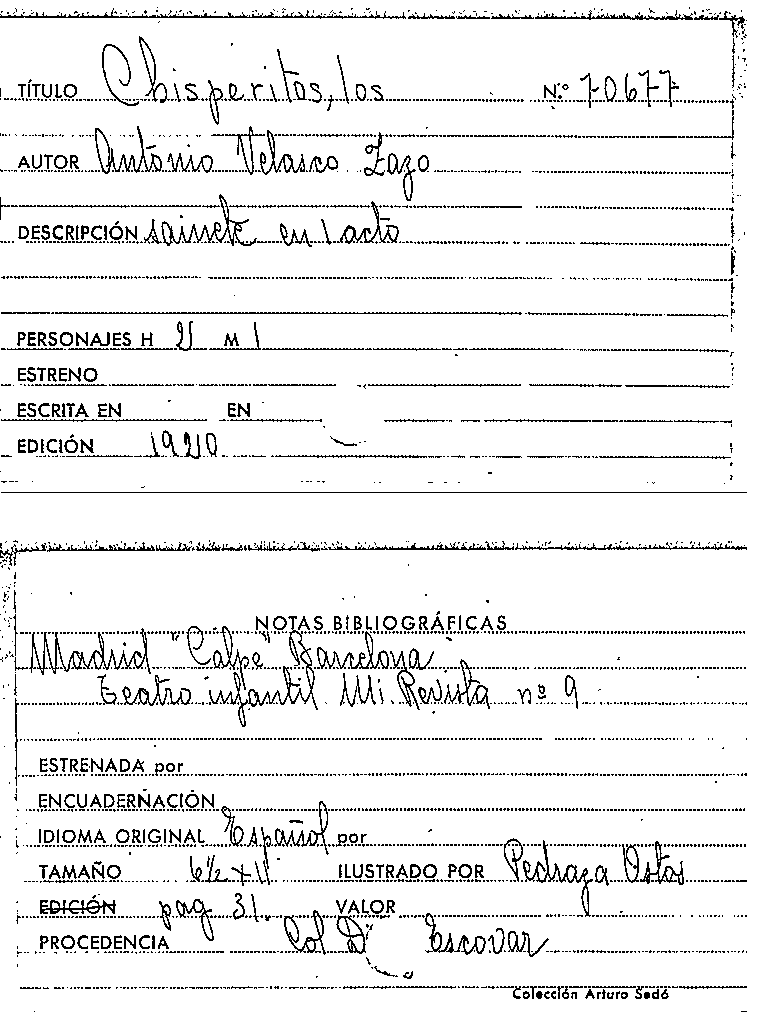 TÍTULO Chisperitos, los N.º 70677
AUTOR Antonio Velasco Zazo
DESCRIPCIÓN sainete en 1 acto
PERSONAJES H 21 M 1
ESTRENO
ESCRITA EN EN
EDICIÓN 1920
NOTAS BIBLIOGRÁFICAS
Madrid "Calpe" Barcelona
Teatro infantil Mi Revista nº 9
ESTRENADA por
ENCUADERNACIÓN
IDIOMA ORIGINAL Español por
TAMAÑO ILUSTRADO POR Pedraza Ostos
EDICIÓN pag 31. VALOR
PROCEDENCIA Col Dº Escovar
Colección Arturo Sedó